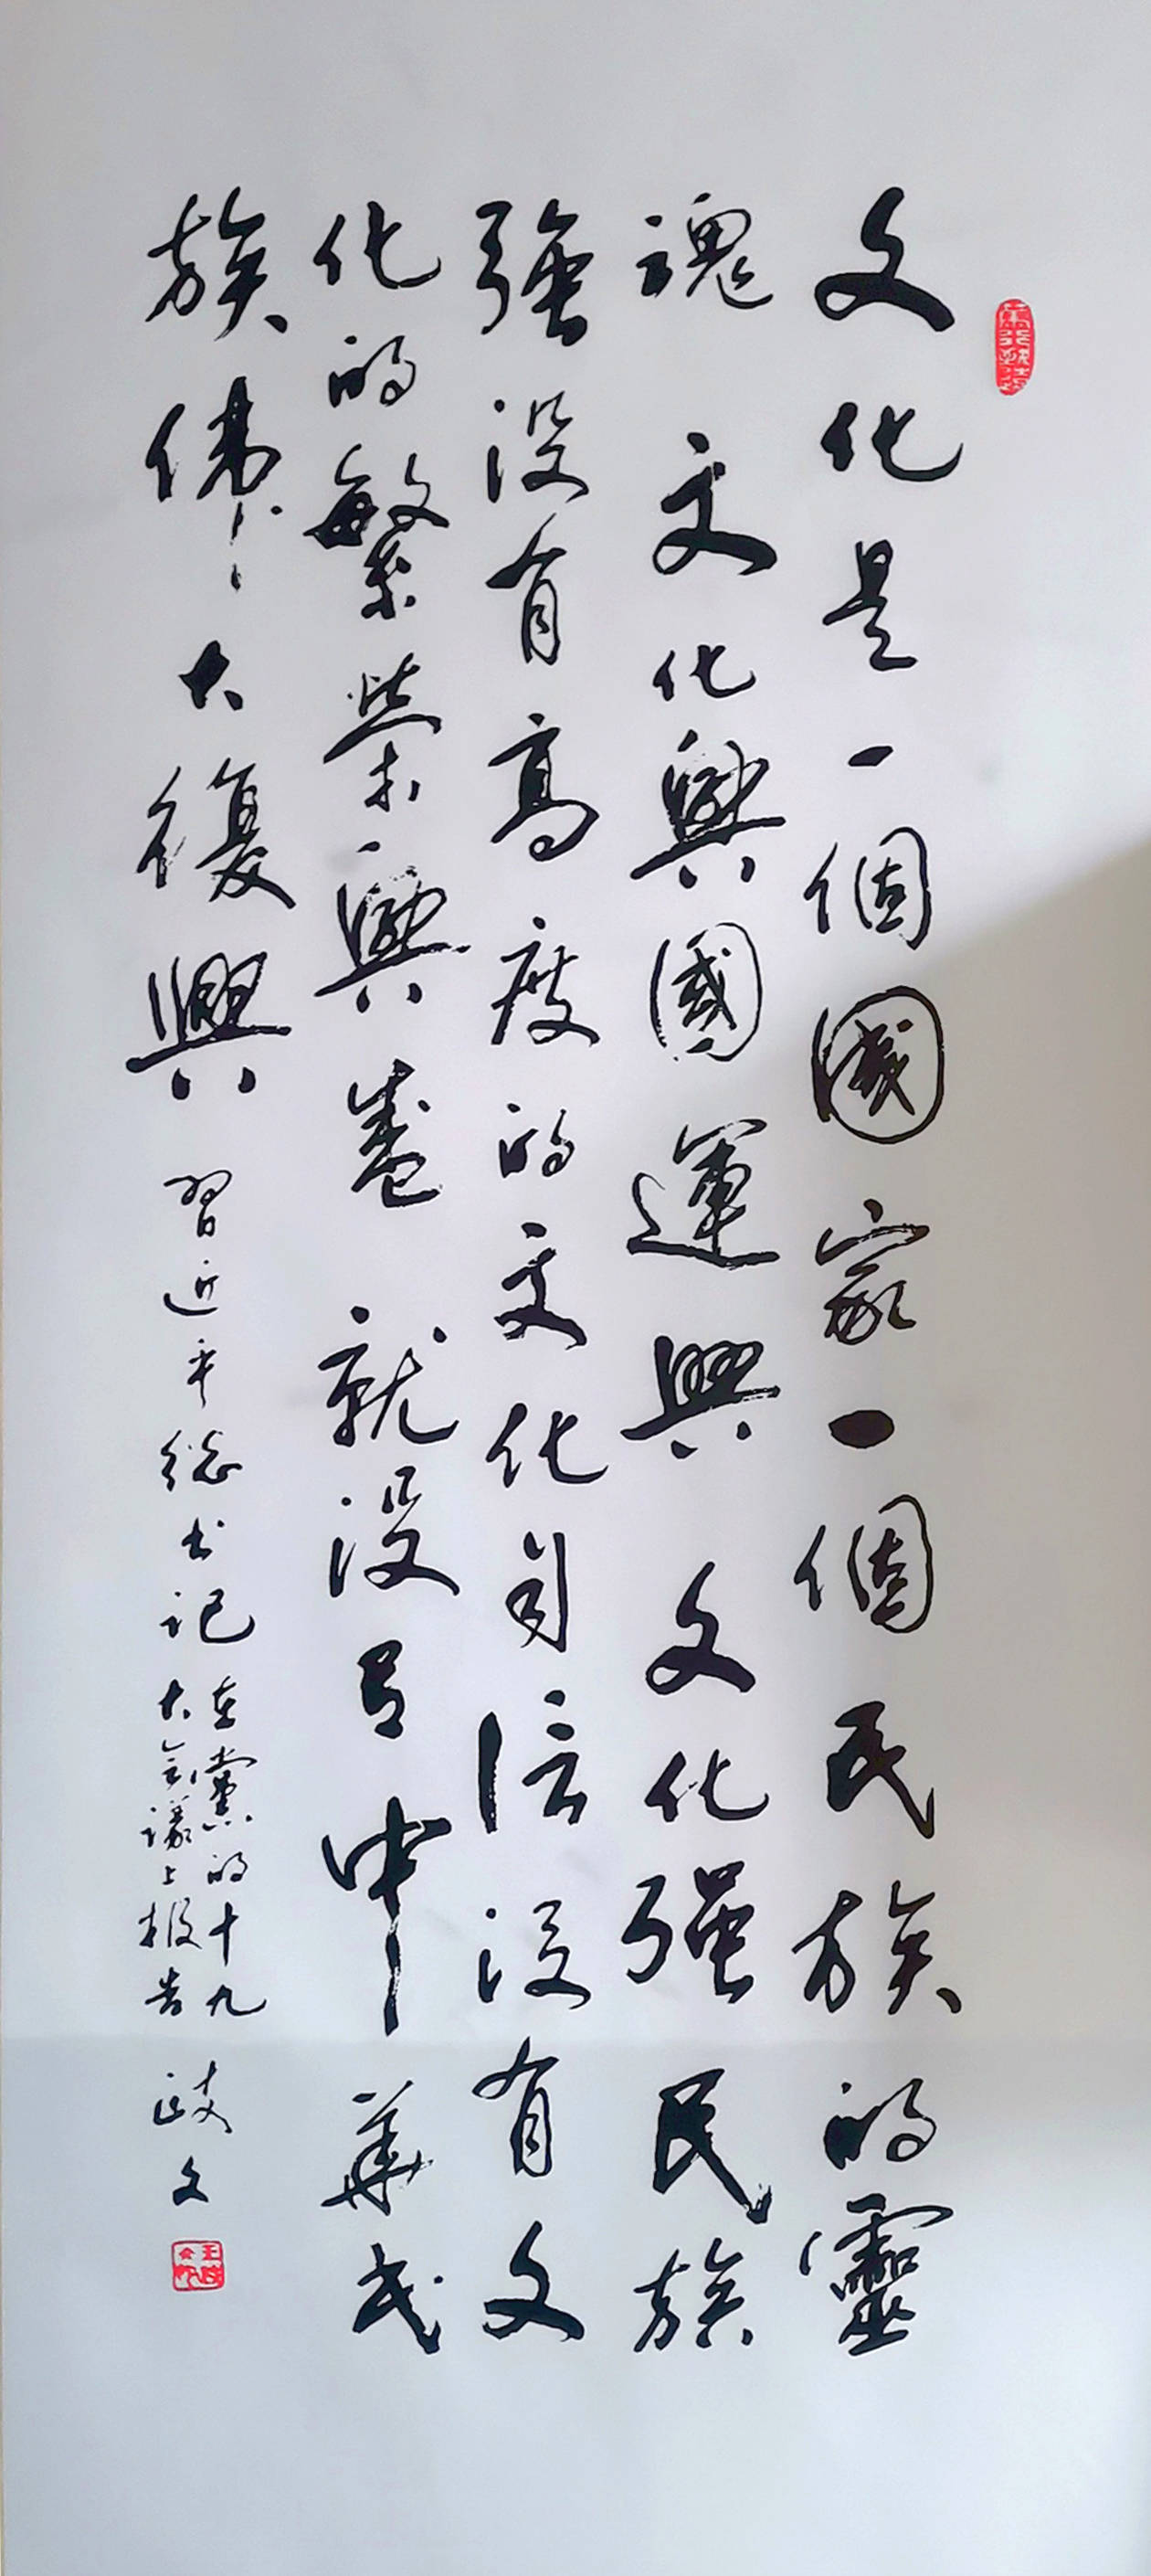 文化是一個國家一個民族的靈
魂 文化興國運興 文化强民族
强没有高度的文化自信没有文
化的繁榮興盛 就没有中華民
族偉大復興 習近平總书记
在黨的十九
大会議上报告
歧文